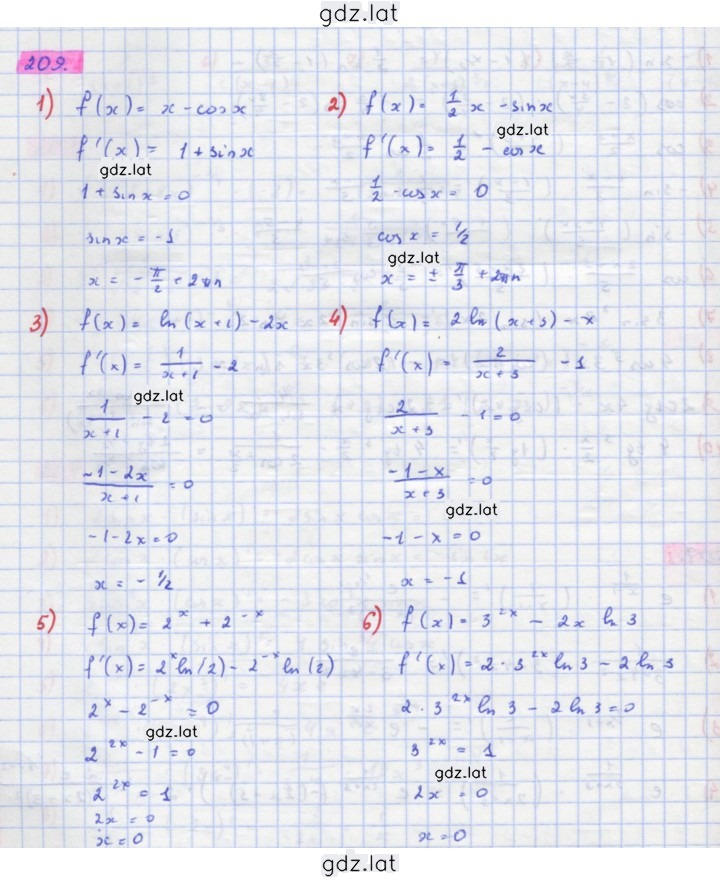 gdz.lat
209.
1) f(x) = x - cos x
f'(x) = 1 + sin x
gdz.lat
1 + sin x = 0
sin x = -1
x = -π/2 + 2πn
2) f(x) = 1/2 x - sin x
gdz.lat
f'(x) = 1/2 - cos x
1/2 - cos x = 0
cos x = 1/2
gdz.lat
x = ± π/3 + 2πn
3) f(x) = ln(x+1) - 2x
f'(x) = 1/(x+1) - 2
gdz.lat
1/(x+1) - 2 = 0
(-1-2x)/(x+1) = 0
-1-2x = 0
x = -1/2
4) f(x) = 2 ln(x+3) - x
f'(x) = 2/(x+3) - 1
2/(x+3) - 1 = 0
(-1-x)/(x+3) = 0
gdz.lat
-1 - x = 0
x = -1
5) f(x) = 2^x + 2^-x
f'(x) = 2^x ln(2) - 2^-x ln(2)
2^x - 2^-x = 0
gdz.lat
2^2x - 1 = 0
2^2x = 1
2x = 0
x = 0
6) f(x) = 3^2x - 2x ln 3
f'(x) = 2 · 3^2x ln 3 - 2 ln 3
2 · 3^2x ln 3 - 2 ln 3 = 0
3^2x = 1
gdz.lat
2x = 0
x = 0
gdz.lat